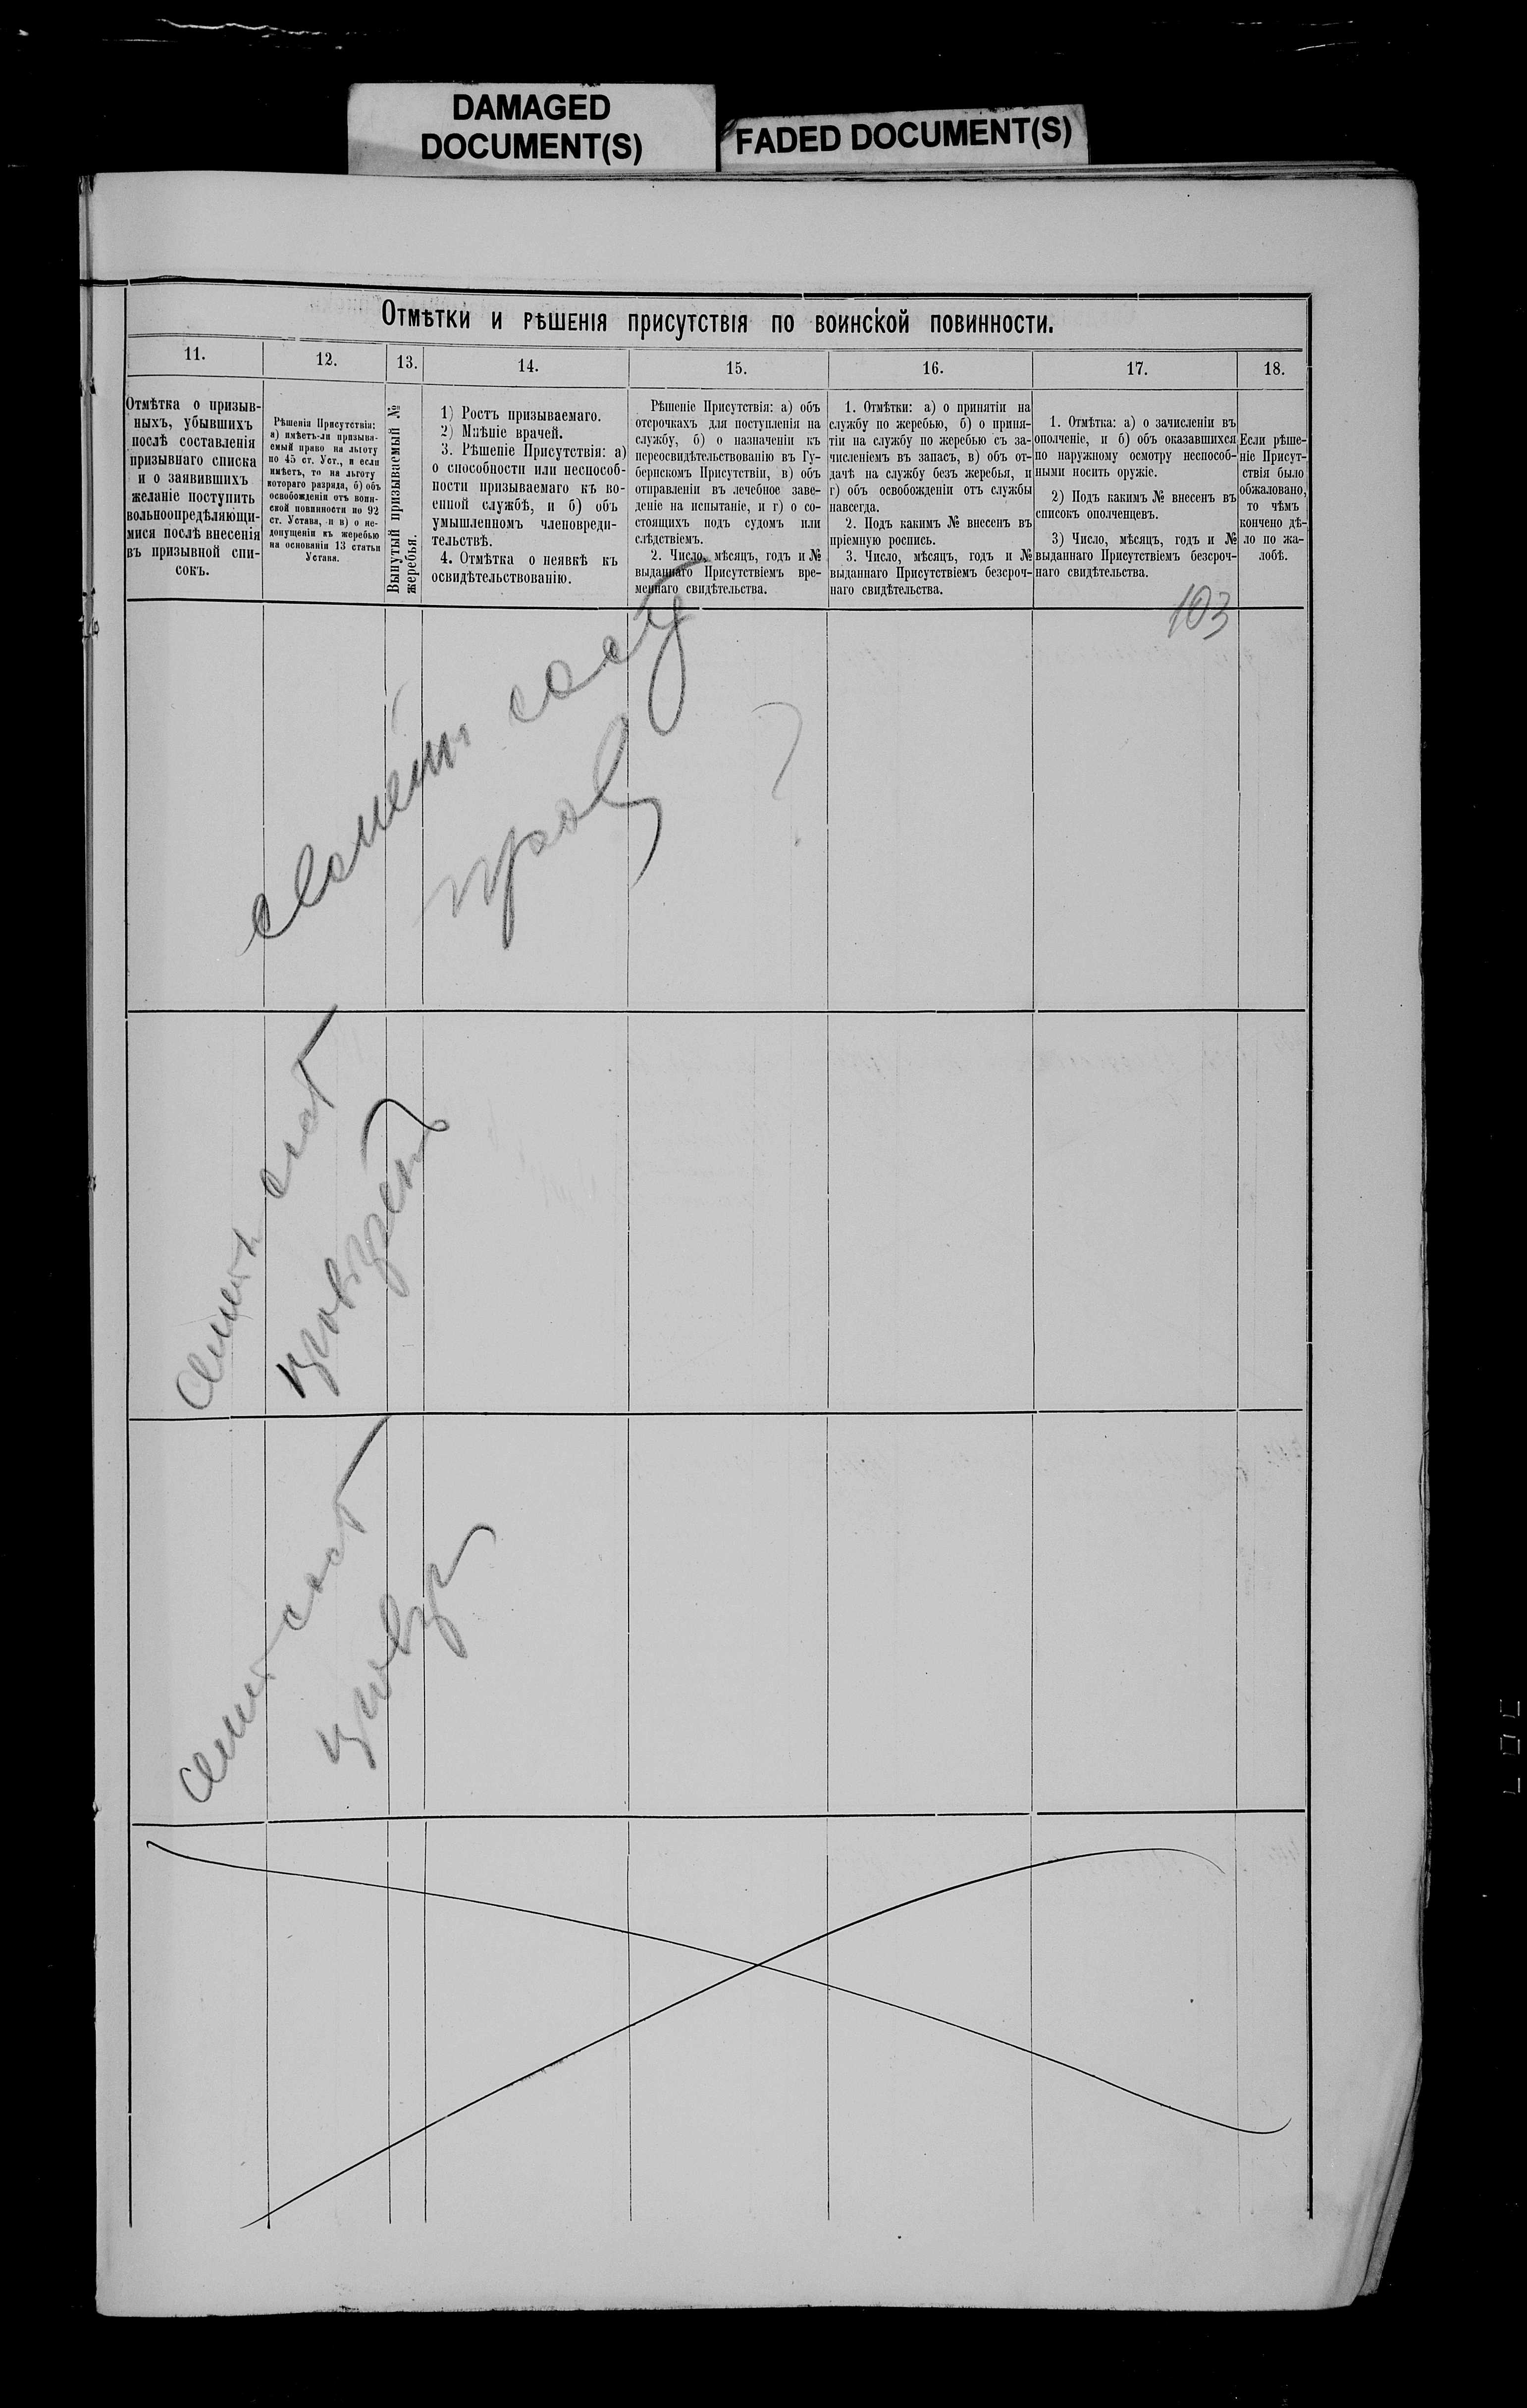 DAMAGED
DOCUMENT(S)
FADED DOCUMENT(S)
Отмѣтки и рѣшенія присутствія по воинской повинности.
11.
12.
13.
14.
15.
16.
17.
18.
Отмѣтка о призыв-
ныхъ, убывшихъ
послѣ составленія
призывнаго списка
и о заявившихъ
желаніе поступить
вольноопредѣляющи-
мися послѣ внесенія
въ призывной спи-
сокъ.
Рѣшенія Присутствія:
а) имѣетъ-ли призыва-
емый право на льготу
по 45 ст. Уст., и если
имѣетъ, то на льготу
котораго разряда, б) объ
освобожденіи отъ воин-
ской повинности по 92
ст. Устава, и в) о не-
допущеніи къ жеребью
на основаніи 13 статьи
Устава.
Вынутый призываемый №
жеребья.
1) Ростъ призываемаго.
2) Мнѣніе врачей.
3. Рѣшеніе Присутствія: а)
о способности или неспособ-
ности призываемаго къ во-
енной службѣ, и б) объ
умышленномъ членовреди-
тельствѣ.
4. Отмѣтка о неявкѣ къ
освидѣтельствованію.
Рѣшеніе Присутствія: а) объ
отсрочкахъ для поступленія на
службу, б) о назначеніи къ
переосвидѣтельствованію въ Гу-
бернскомъ Присутствіи, в) объ
отправленіи въ лечебное заве-
деніе на испытаніе, и г) о со-
стоящихъ подъ судомъ или
слѣдствіемъ.
2. Число, мѣсяцъ, годъ и №
выданнаго Присутствіемъ вре-
меннаго свидѣтельства.
1. Отмѣтки: а) о принятіи на
службу по жеребью, б) о приня-
тіи на службу по жеребью съ за-
численіемъ въ запасъ, в) объ от-
дачѣ на службу безъ жеребья, и
г) объ освобожденіи отъ службы
навсегда.
2. Подъ какимъ № внесенъ въ
пріемную роспись.
3. Число, мѣсяцъ, годъ и №
выданнаго Присутствіемъ безсроч-
наго свидѣтельства.
1. Отмѣтка: а) о зачисленіи въ
ополченіе, и б) объ оказавшихся
по наружному осмотру неспособ-
ными носить оружіе.
2) Подъ какимъ № внесенъ въ
списокъ ополченцевъ.
3) Число, мѣсяцъ, годъ и №
выданнаго Присутствіемъ безсроч-
наго свидѣтельства.
Если рѣше-
ніе Присут-
ствія было
обжаловано,
то чѣмъ
кончено дѣ-
ло по жа-
лобѣ.
103
?